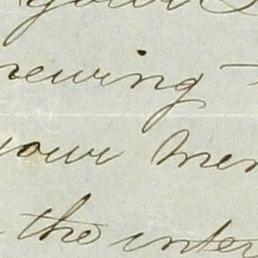 your
newing
your mem
the inter